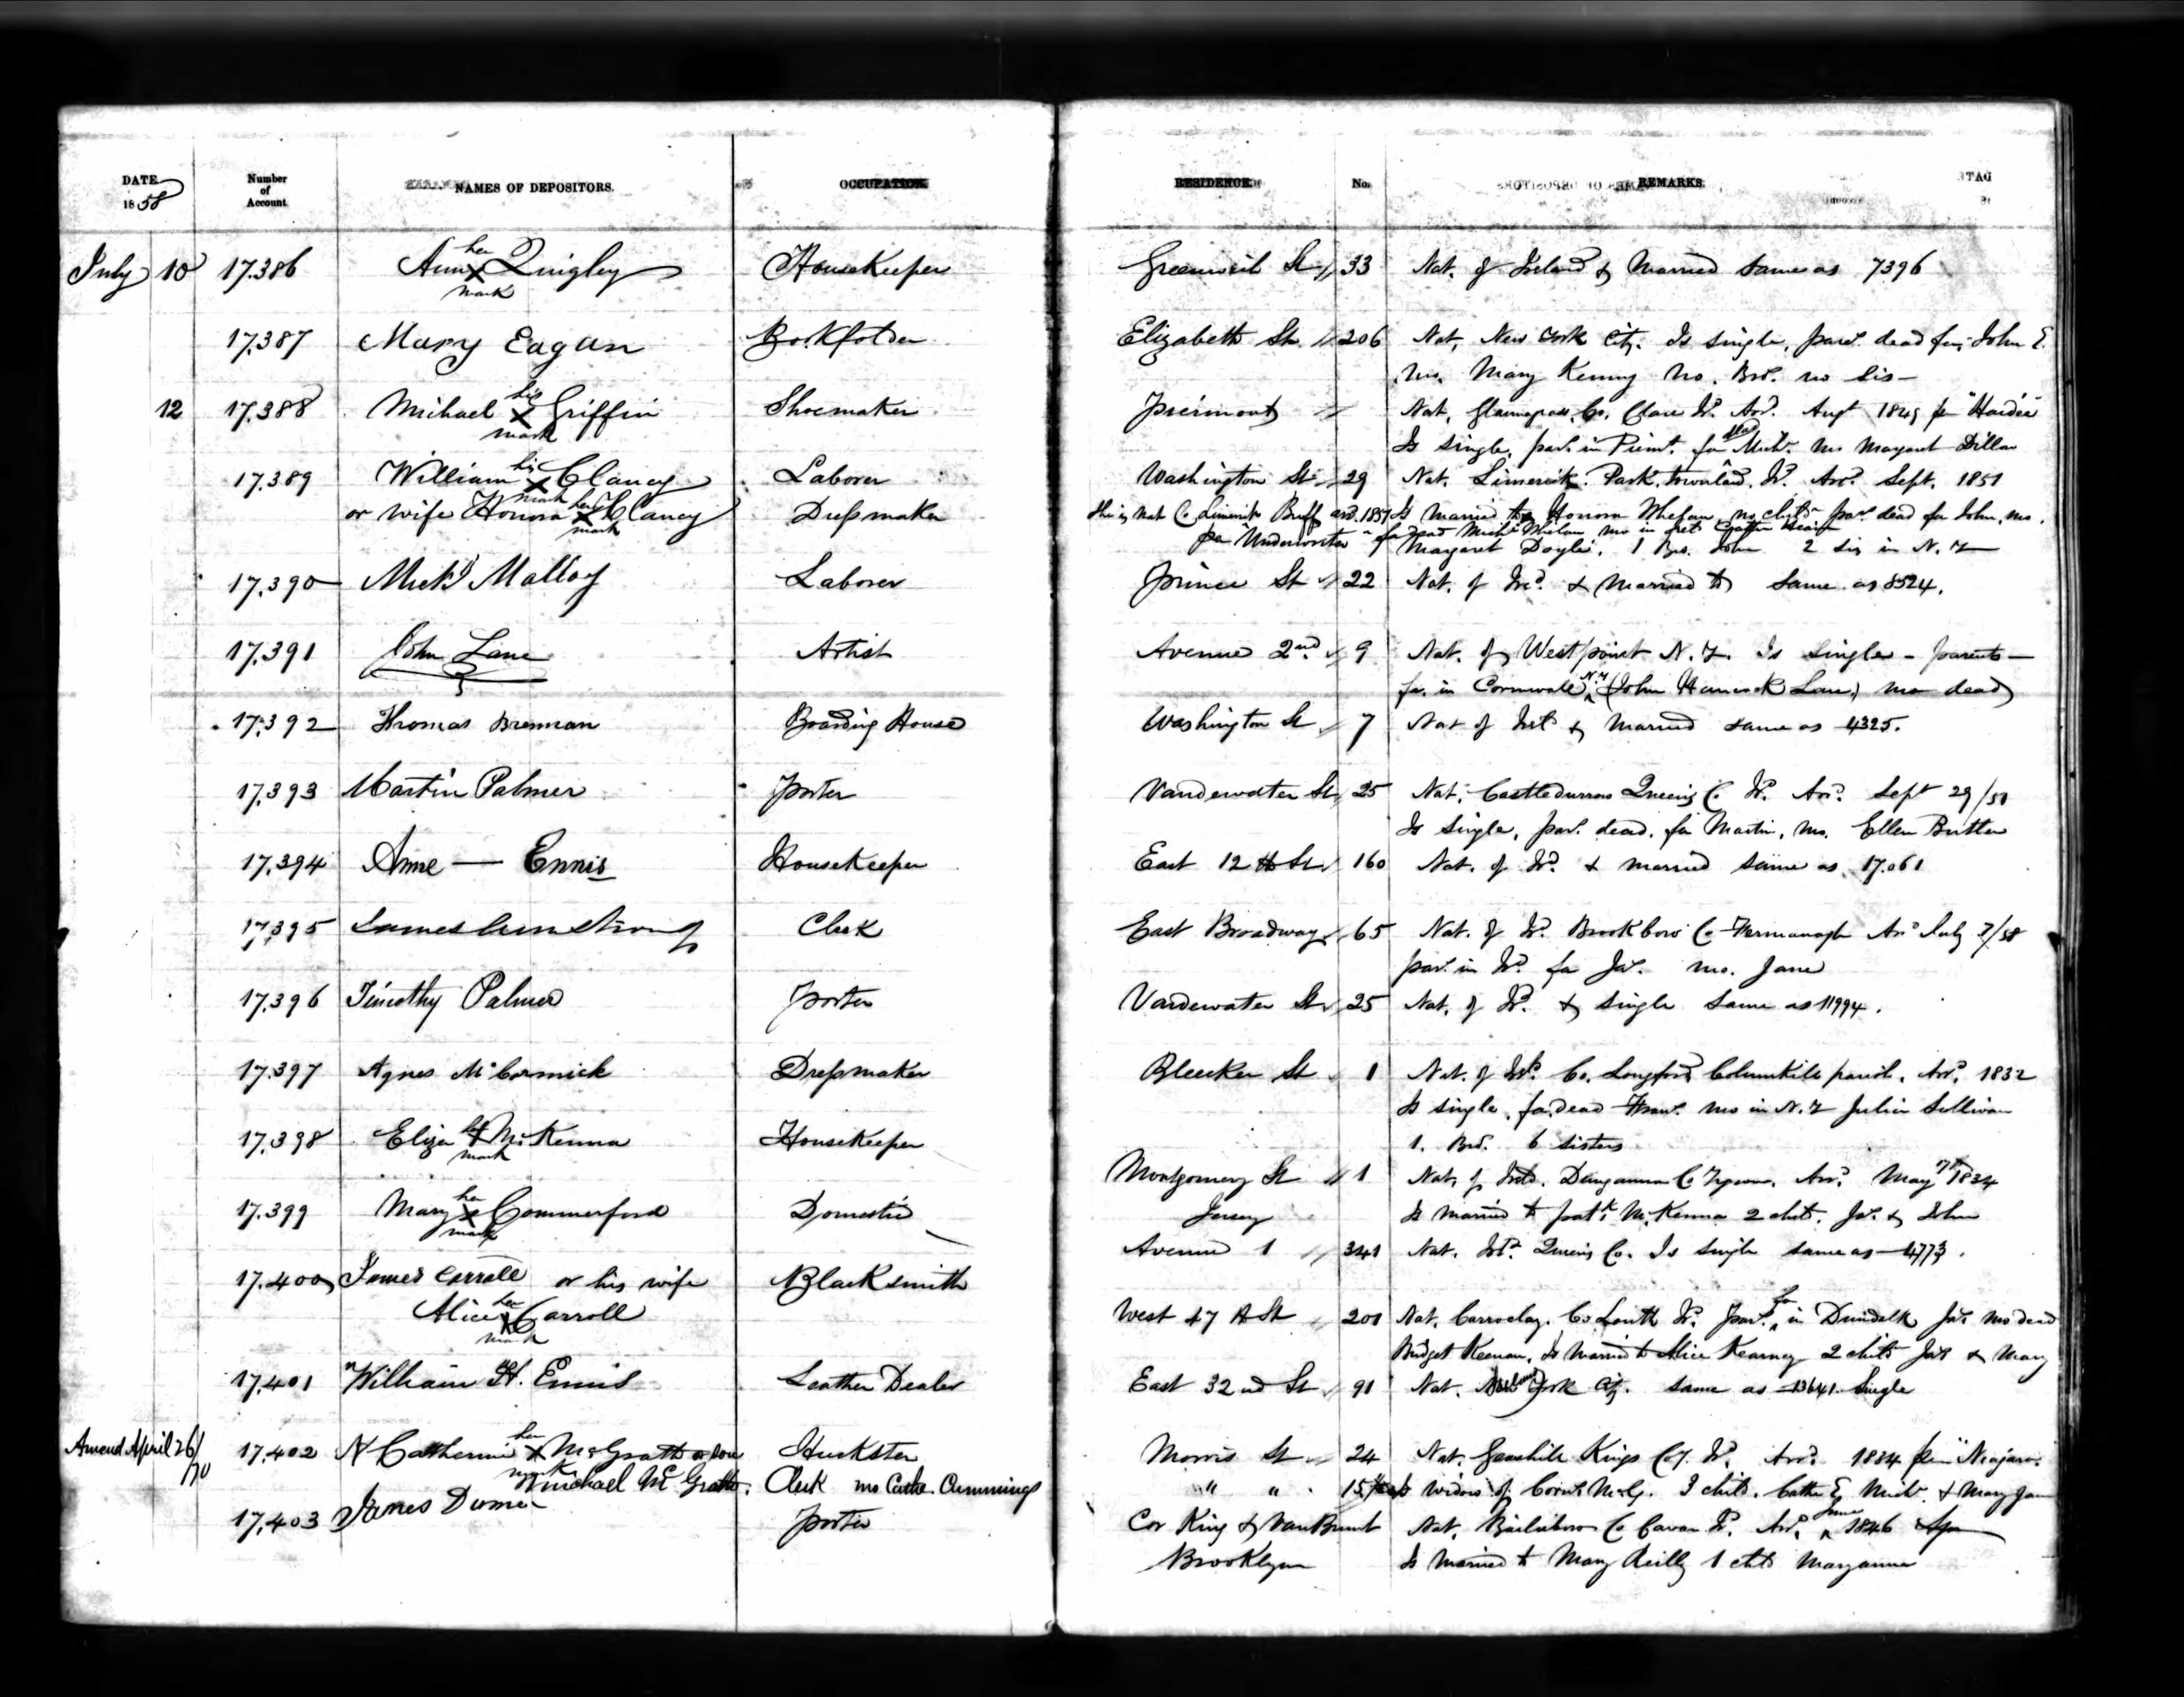 DATE 1858
Number of Account
NAMES OF DEPOSITORS.
OCCUPATION.
RESIDENCE
No.
REMARKS
July 10 17.386 Ann her x mark Quigley Housekeeper Greenwich St 33 Nat. of Ireland & Married same as 7396
17.387 Mary Eagan Bookfolder Elizabeth St. 206 Nat, New York City. Is single, pars. dead fa, John E.
mo. Mary Kenny no. Bro. no Sis
12 17.388 Michael his x mark Griffin Shoemaker Piermont Nat. Co. Clare Ir. Arrd. Augt 1849
Is single, pars. in Piermt. fa Michl. mo Margaret Dillon
17.389 William his x mark Clancy Laborer Washington St 29 Nat. Limerick. Park. townland. Ir. Arr. Sept. 1851
or wife Honora her x mark Clancy Dressmaker She is Nat Co Limerick Bruff arrd. 1857 Is Married to Honora Whelan, no child pars. dead fa John, mo.
per Underwriter fa dead Michl Whelan mo in
Margaret Doyle. 1 Bro. John 2 sis in N.Y
17.390 Michl Malloy Laborer Prince St 22 Nat. of Ird. & Married to same as 8524.
17.391 John Lane Artist Avenue 2nd 9 Nat. of Westpoint N.Y. Is single - parents -
fa. in Cornwall N.Y (John Hancock Lane) mo dead
17.392 Thomas Brennan Boarding House Washington St 7 Nat of Ird & Married same as 4325.
17.393 Martin Palmer Porter Vandewater St 25 Nat. Castledurrow Queens Co Ir. Arr. Sept 29/51
Is single, pars. dead. fa Martin, mo. Ellen Butler
17.394 Anne — Ennis Housekeeper East 12th St 160 Nat. of Ir. & married same as 17.061
17.395 James Armstrong Clerk East Broadway 65 Nat. of Ir. Brookboro Co Fermanagh Arr July 7/58
pars. in Ir. fa Jas. mo. Jane
17.396 Timothy Palmer Porter Vandewater St 25 Nat. of Ir. & single same as 11994.
17.397 Agnes McCormick Dressmaker Bleecker St 1 Nat. of Ird. Co. Longford Columkill parish. Arr. 1832
Is single, fa. dead mo in N.Y Julia Sullivan
1. Bro. 6 sisters
17.398 Eliza her x mark McKenna Housekeeper Montgomery St 1 Nat, of Ird. Dungannon Co Tyrone. Arr. May 1834
Jersey Is married to Patk. McKenna 2 child. Jas. & John
17.399 Mary her x mark Commerford Domestic Avenue 1 341 Nat. Ird. Queens Co. Is single same as 4773.
17.400 James Carroll or his wife Blacksmith West 47th St 201 Nat. Co Louth Ir. Pars. fa in Dundalk Jas. mo dead
Alice her x mark Carroll Bridget Keenan. Is married to Alice Kearney 2 child Jas & Mary
17.401 William H. Ennis Leather Dealer East 32nd St 91 Nat. New York City. same as 13641. Single
Amend April 26/70 17.402 Catherine her x mark McGrath or son Huckster Morris St 24 Nat. Geashill Kings Co. Ir. Arr. 1834 per "Niagara.
Michael McGrath. Clerk mo Cathe. Cummings " " 15 Is widow of McG. 3 child. Cathe E, Michl. & Mary Jane
17.403 James Porter Cor King & Van Brunt Nat. Bailieboro Co Cavan Ir. Arr. June 1846
Brooklyn Is married to Mary Reilly 1 child Maryanne